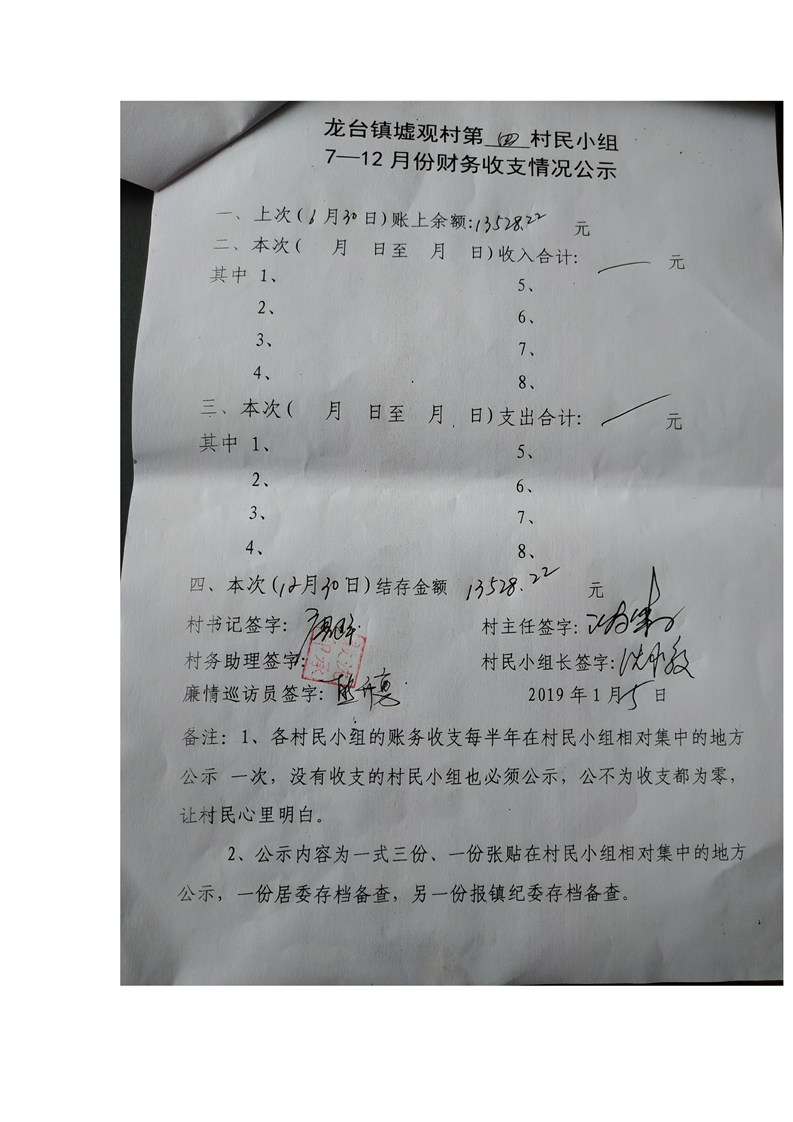 龙台镇墟观村第 四 村民小组
7—12 月份财务收支情况公示
一、上次(6月30日)账上余额:13528.22 元
二、本次( 月 日至 月 日)收入合计: — 元
其中 1、 5、
2、 6、
3、 7、
4、 8、
三、本次( 月 日至 月 日)支出合计: — 元
其中 1、 5、
2、 6、
3、 7、
4、 8、
四、本次(12月30日)结存金额 13528.22 元
村书记签字: 村主任签字:
村务助理签字: 村民小组长签字:
廉情巡访员签字: 2019 年 1 月 5 日
备注: 1、各村民小组的账务收支每半年在村民小组相对集中的地方
公示 一次，没有收支的村民小组也必须公示，公不为收支都为零，
让村民心里明白。
2、公示内容为一式三份、一份张贴在村民小组相对集中的地方
公示，一份居委存档备查，另一份报镇纪委存档备查。